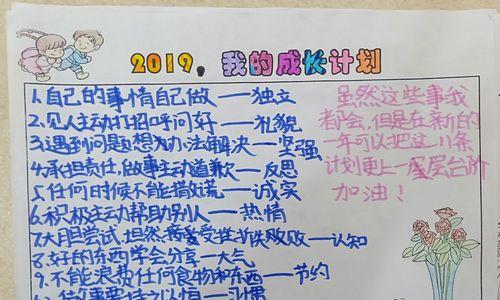 2019，我的成长计划
1.自己的事情自己做——独立
2.见人主动打招呼问好——礼貌
3.遇到问题想办法解决——坚强
4.承担责任，做事主动道歉——反思
5.任何时候不能撒谎——诚实
6.积极主动帮助别人——热情
7.大胆尝试，坦然接受挫折失败——认知
8.好的东西学会分享——大气
9.不能浪费任何食物和东西——节约
做事要持之以恒——习惯
虽然这些事我
都会，但是在新的
一年可以把这11条
计划更上一层台阶
加油！